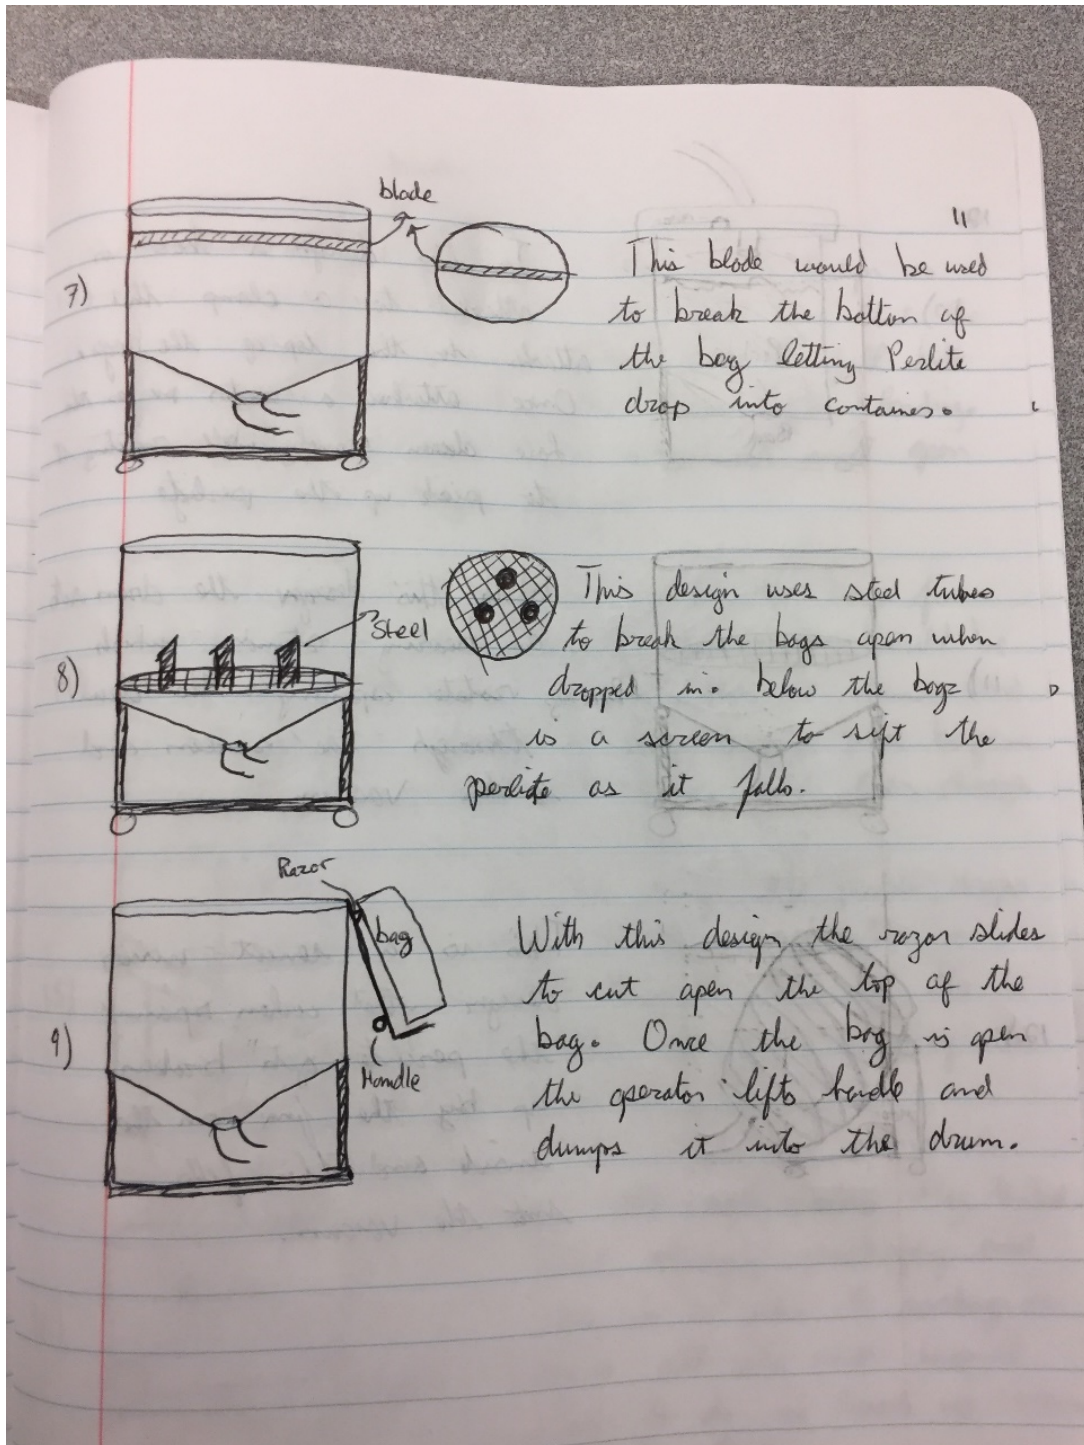 11
blade
7)
This blade would be used
to break the bottom of
the bag letting Perlite
drop into container.
Steel
8)
This design uses steel tubes
to break the bags open when
dropped in. below the bags
is a screen to sift the
perlite as it falls.
Razor
bag
Handle
9)
With this design the razor slides
to cut open the top of the
bag. Once the bag is open
the operator lifts handle and
dumps it into the drum.